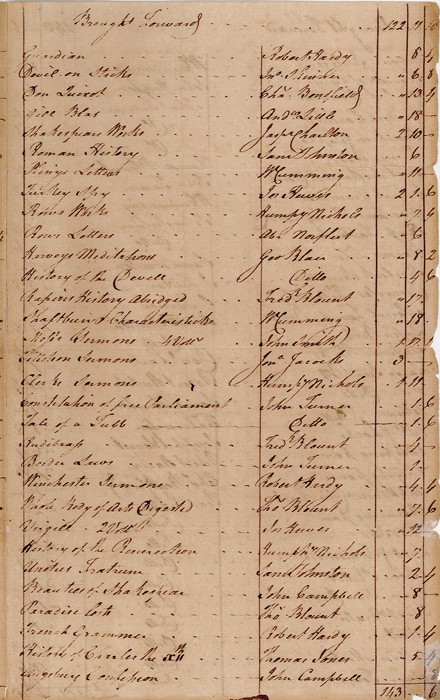 Brought Forward 122
Guardian Robert Hardy 8 4
Devil on Sticks Jno. " 6 8
Don Quixot Chas. Bondfield " 13 4
Gill Blas Andw. " 18
Shakespears Works Jaspr. Charlton 2 10
Roman History Saml Johnston 6
Plinys Letters Wm Cumming " 11
Turkey Spy Jos Hewes 2 1 6
Rows Works Humpy Nichols " 7 4
Rows Letters Abr. Norfleet " 6
Herveys Meditations Geo Blair " 8 2
History of the Devell Ditto " 4 6
Rapins History Abridged Fredk. Blount " 17
Shaftburys Characteristicks Wm Cumming " 18
Sermons 4 Voll John Smith 1
Tillitson Sermons Jno. Jacocks 3
Clerke Sermons Humpy Nichols 1 11
Constitution of free Parliament John Turner 1 6
Tale of a Tubb Ditto 1 6
Hudibrass Fredk. Blount 4
Border Laws John Turner 1
Winchester Sermons Robert Hardy 4 4
Whole Body of Arts Digested Thos. Blount " 7 6
Virgill 2 Voll Jos Hewes " 12
History of the Resurection Humphy Nichols " 7
Fratrum Saml Johnston 2 4
Beauties of Shakespear John Campbell 8
Paradise Lost Thos. Blount 8
French Grammer Robert Hardy 1 4
History of Carles the XIIth Thomas Jones 5 4
Augsburg Confession John Campbell
143